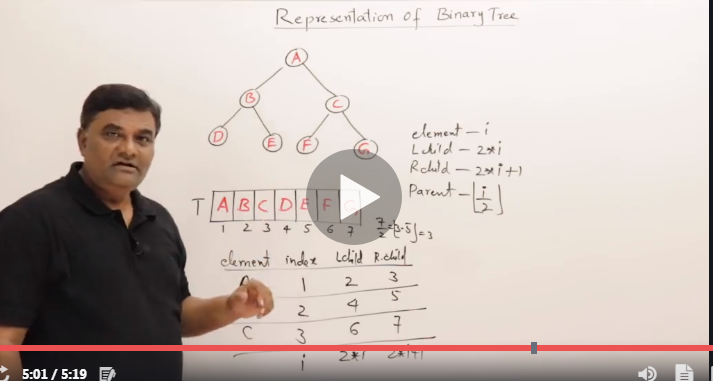 Representation of Binary Tree
A
B C
D E F G
element – i
Lchild – 2*i
Rchild – 2*i+1
Parent – ⌊i/2⌋
T A B C D E F
1 2 3 4 5 6 7
7/2 = ⌊3.5⌋ = 3
element index Lchild R.child
A 1 2 3
2 4 5
C 3 6 7
i 2*i 2*i+1
5:01 / 5:19